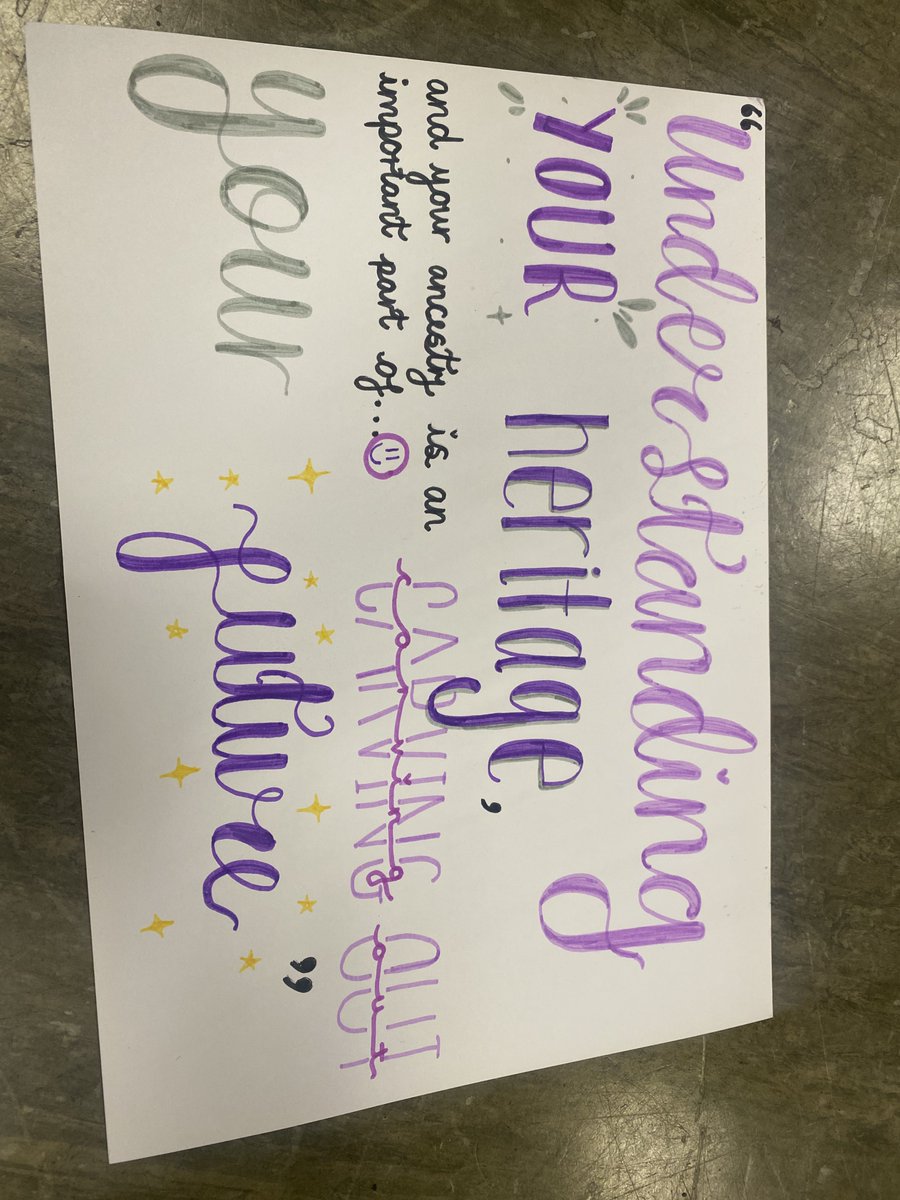 “Understanding
YOUR heritage,
and your ancestry is an
important part of... CARVING OUT
carving out
your future”